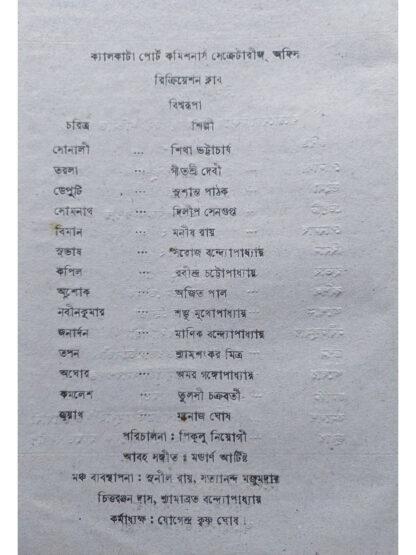 ক্যালকাটা পোর্ট কমিশনার্স সেক্রেটারীজ্ অফিস
রিক্রিয়েশন ক্লাব
বিশ্বরূপা
চরিত্র শিল্পী
সোনালী ... শিখা ভট্টাচার্য
তরলা ... গীতশ্রী দেবী
ডেপুটি ... সুশান্ত পাঠক
সোমনাথ ... দিলীপ সেনগুপ্ত
বিমান ... মনীষ রায়
সুভাষ ... সরোজ বন্দ্যোপাধ্যায়
কপিল ... রবীন্দ্র চট্টোপাধ্যায়
অশোক ... অজিত পাল
নবীনকুমার ... শম্ভু মুখোপাধ্যায়
জনার্দন ... মাণিক বন্দ্যোপাধ্যায়
তপন ... শ্যামশংকর মিত্র
অঘোর ... অমর গঙ্গোপাধ্যায়
কমলেশ ... তুলসী চক্রবর্তী
... মনোজ ঘোষ
পরিচালনা : পিকলু নিয়োগী
আবহ সঙ্গীত : মডার্ণ আর্টিষ্ট
মঞ্চ ব্যবস্থাপনা : সুনীল রায়, সত্যানন্দ মজুমদার
চিত্তরঞ্জন দাস, শ্যামাব্রত বন্দ্যোপাধ্যায়
কর্মাধ্যক্ষ : যোগেন্দ্র কৃষ্ণ ঘোষ।